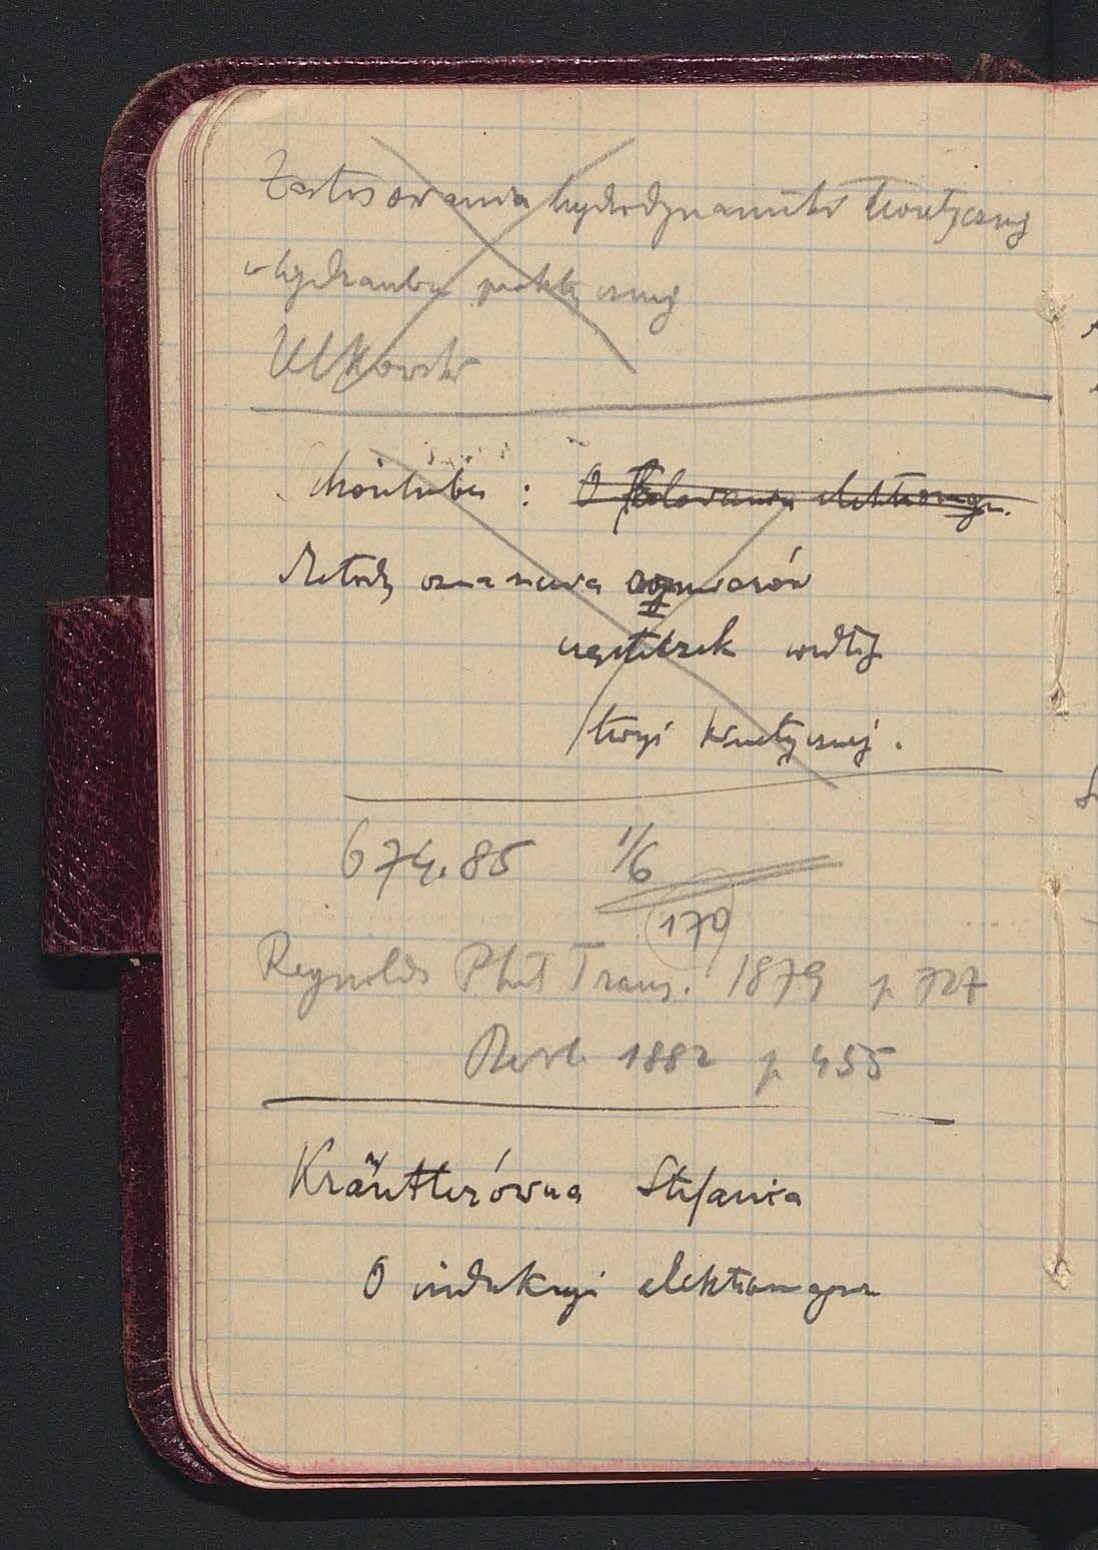 Zastosowania hydrodynamiki teoretycznej
w hydraulice praktycznej
: O falowaniu elektromagn.
Metody oznaczenia rozmiarów
cząsteczek według
teoryi kinetycznej.
674.85 1/6
170
Reynolds Phil Trans. 1879 p 727
Beibl. 1882 p 455
Kräutlerówna Stefania
O indukcyi elektromagn